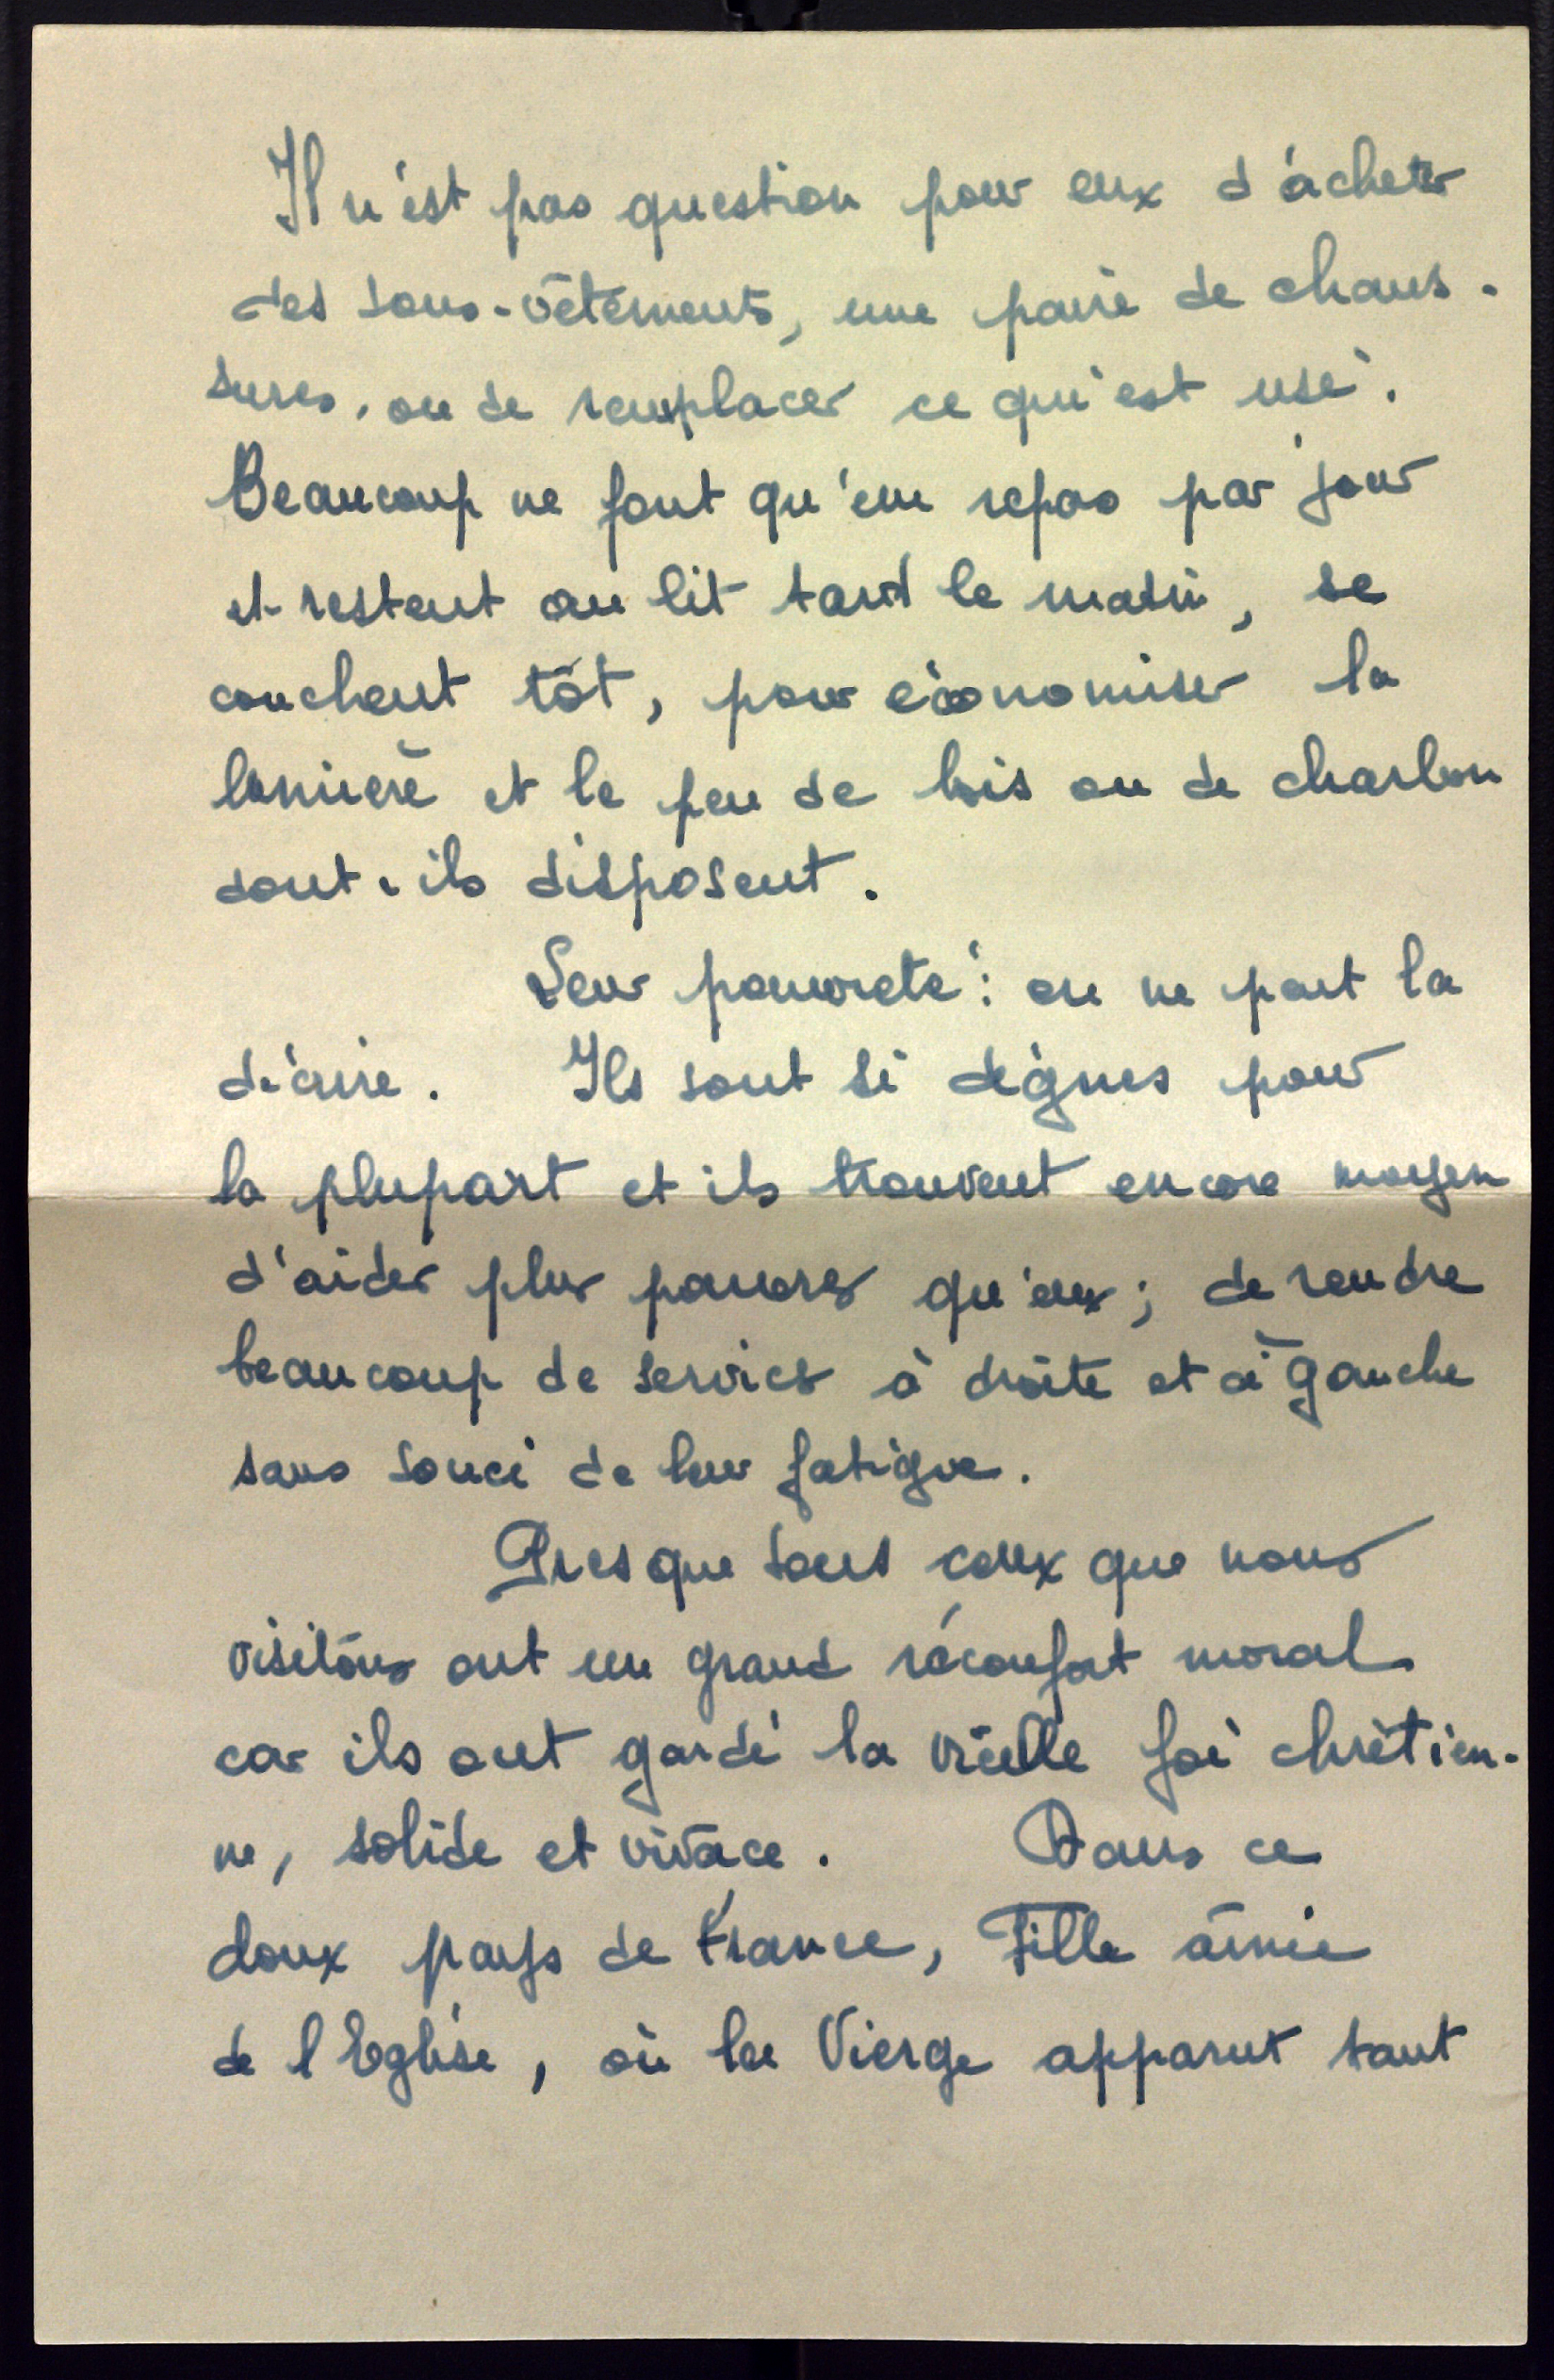 Il n'est pas question pour eux d'acheter
des sous-vêtements, une paire de chaus-
sures, ou de remplacer ce qu'est usé.
Beaucoup ne font qu'un repas par jour
et restent au lit tard le matin, se
couchent tôt, pour économiser la
lumière et le peu de bois ou de charbon
dont-ils disposent.
Leur pauvreté : on ne peut la
décrire. Ils sont si dignes pour
la plupart et ils trouvent encore moyen
d'aider plus pauvres qu'eux ; de rendre
beaucoup de services à droite et à gauche
sans souci de leur fatigue.
Presque tous ceux que nous
visitons ont un grand réconfort moral
car ils ont gardé la vieille foi chrétien-
ne, solide et vivace. Dans ce
doux pays de France, Fille aînée
de l'Eglise, où la Vierge apparut tant